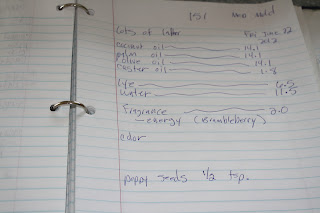 Lots of lather
Fri, June 22
2012
coconut oil 14.1
palm oil 14.1
olive oil 14.1
castor oil 1.8
lye 6.5
water 11.5
fragrance 2.0
- energy (brambleberry)
color
poppy seeds 1/2 tsp.